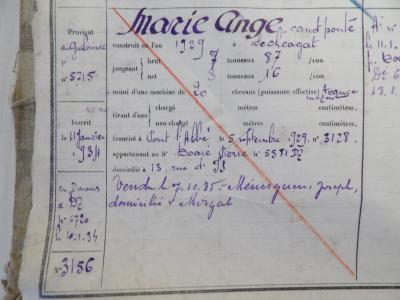 Marie Ange
Provient
de
N° 5715
Inscrit
le 11 janvier
1934
N° 6720
le 10.1.34
N° 3156
construit en l'an 1929 à Lechiagat
jaugeant brut 7 tonneaux 87 /100
net 3 tonneaux 16 /100
muni d'une machine de 20 chevaux (puissance effective)
tirant d'eau chargé mètres centimètres,
non chargé mètres centimètres,
francisé à Pont l'Abbé le 5 septembre 1929. n° 3128.
appartenant au Sr Pierre n° 5581
domicilié à 13, rue de
Vendu le 7.10.35 - Menesguen, Joseph,
domicilié à Morgat